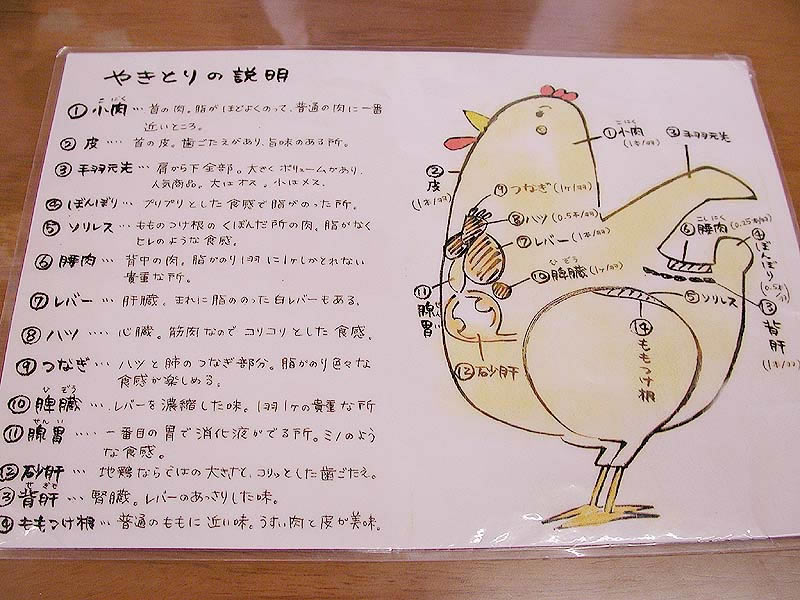 やきとりの説明
① 小肉 … 首の肉。脂がほどよくのって、普通の肉に一番
こにく
近いところ。
② 皮 … 首の皮。歯ごたえがあり、旨味のある所。
③ 手羽元先 … 肩から下全部。大きくボリュームがあり、
人気商品。大はオス。小はメス。
④ ぼんぼり … プリプリとした食感で脂がのった所。
⑤ ソリレス … もものつけ根のくぼんだ所の肉。脂がなく
ヒレのような食感。
⑥ 腰肉 … 背中の肉。脂がのり1羽に1ヶしかとれない
貴重な所。
⑦ レバー … 肝臓。まれに脂ののった白レバーもある。
⑧ ハツ … 心臓。筋肉なのでコリコリとした食感。
⑨ つなぎ … ハツと肺のつなぎ部分。脂がのり色々な
食感が楽しめる。
ひぞう
⑩ 脾臓 … レバーを濃縮した味。1羽1ヶの貴重な所
せんい
⑪ 腺胃 … 一番目の胃で消化液がでる所。ミノのよう
な食感。
⑫ 砂肝 … 地鶏ならではの大きさと、コリッとした歯ごたえ。
せぎも
③ 背肝 … 腎臓。レバーのあっさりした味。
④ ももつけ根 … 普通のももに近い味。うすい肉と皮が美味。
こにく
①小肉
(1本/羽)
③手羽元先
②皮
(1本/羽)
⑨つなぎ(1ヶ/羽)
⑧ハツ(0.5本/羽)
⑦レバー(1本/羽)
ひぞう
⑩脾臓(1ヶ/羽)
⑪腺胃
せんい
⑫砂肝
こしにく
⑥腰肉(0.25本/羽)
④ぼんぼり
⑤ソリレス
⑬背肝
(1本/羽)
⑭ももつけ根